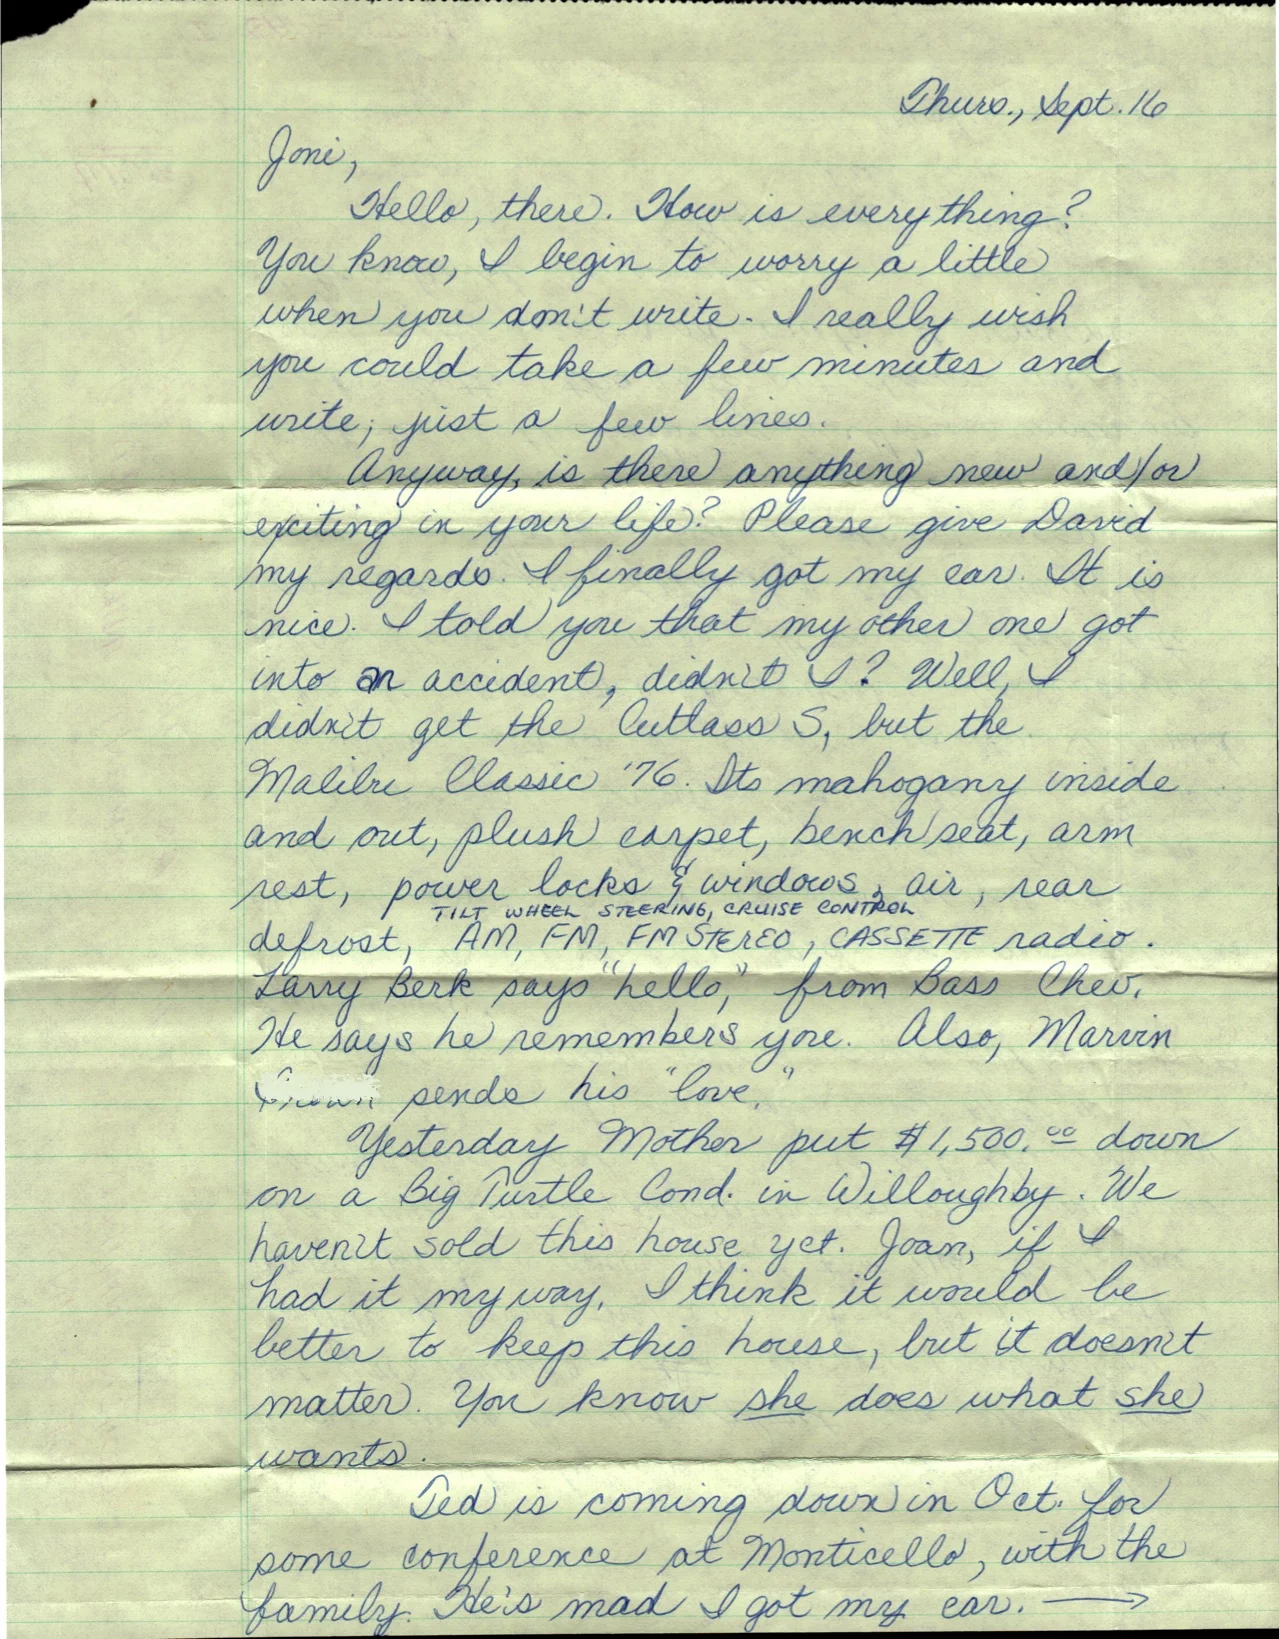 Thurs., Sept. 16
Joni,
Hello, there. How is everything?
You know, I begin to worry a little
when you don't write. I really wish
you could take a few minutes and
write; just a few lines.
Anyway, is there anything new and/or
exciting in your life? Please give David
my regards. I finally got my car. It is
nice. I told you that my other one got
into an accident, didn't I? Well, I
didn't get the Cutlass S, but the
Malibu Classic '76. Its mahogany inside
and out, plush carpet, bench seat, arm
rest, power locks & windows, air, rear
TILT WHEEL STEERING, CRUISE CONTROL
defrost, AM, FM, FM STEREO, CASSETTE radio.
Larry Berk says "hello," from Bass Chev.
He says he remembers you. Also, Marvin
sends his "love."
Yesterday Mother put $1,500.00 down
on a Big Turtle Cond. in Willoughby. We
haven't sold this house yet. Joan, if I
had it my way, I think it would be
better to keep this house, but it doesn't
matter. You know she does what she
wants.
Ted is coming down in Oct. for
some conference at Monticello, with the
family. He's mad I got my car. →